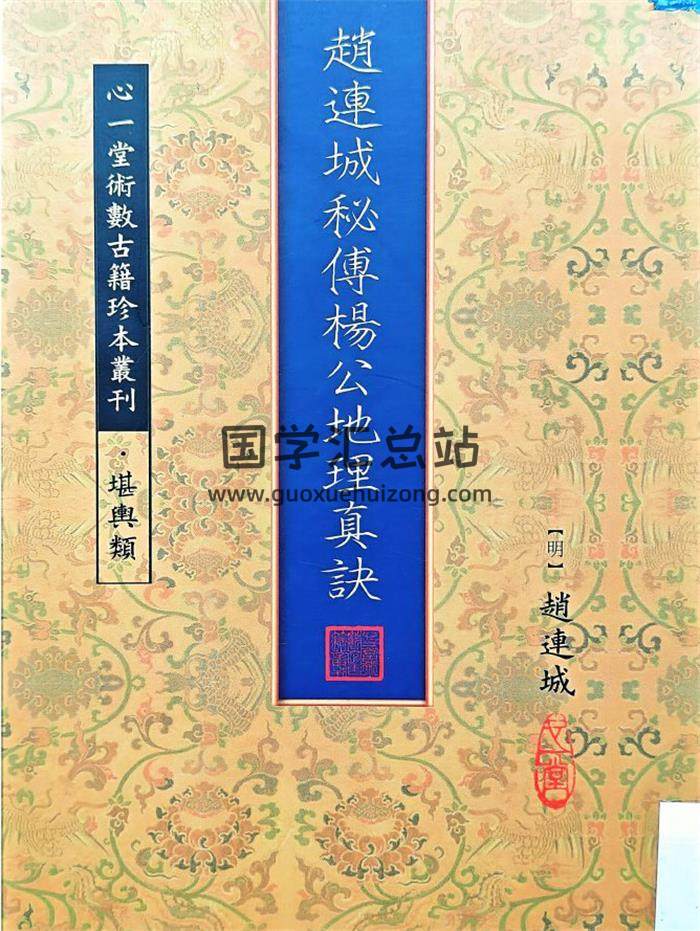 趙連城秘傳楊公地理真訣
心一堂術數古籍珍本叢刊
·堪輿類
【明】趙連城
国学汇总站
www.guoxuehuizong.com